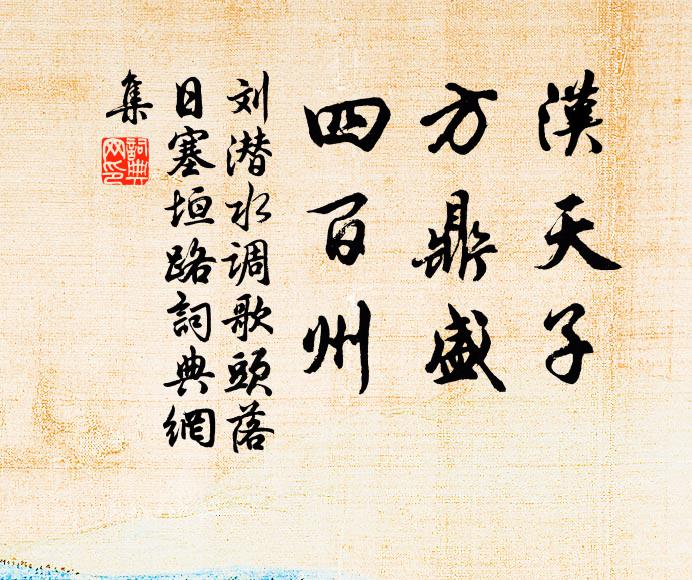 漢天子
方鼎盛
四百州
刘潜水调歌頭落
日塞垣路詞典網
集
詞典
网印